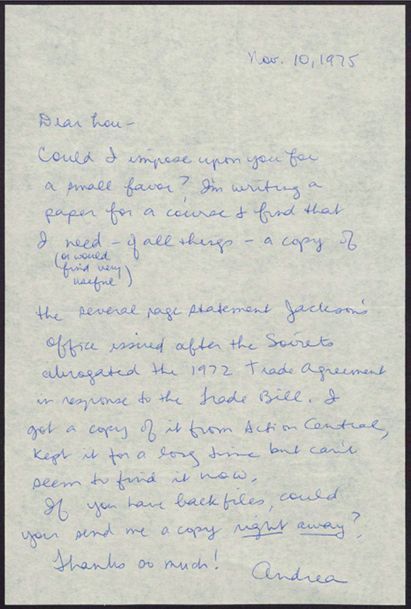 Nov. 10, 1975
Dear Lou-
Could I impose upon you for
a small favor? I'm writing a
paper for a course & find that
I need - of all things - a copy of
(or would
find very
useful)
the several page statement Jackson's
office issued after the Soviets
abrogated the 1972 Trade Agreement
in response to the Trade Bill. I
got a copy of it from Action Central,
kept it for a long time but can't
seem to find it now.
If you have backfiles, could
you send me a copy right away?
Thanks so much!
Andrea